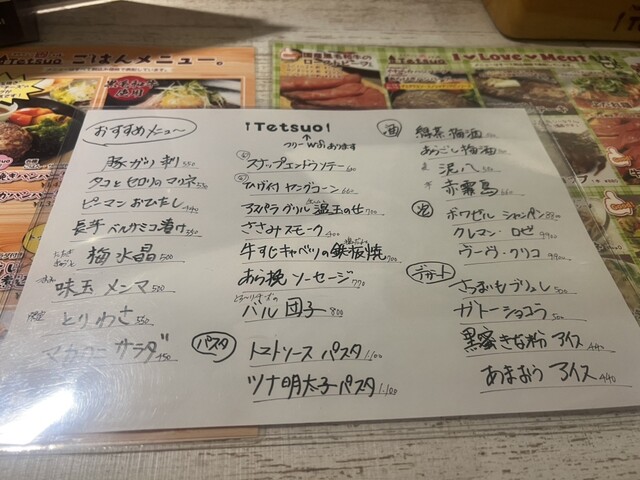 Tetsuo ごはんメニュー。
Tetsuo I♥Love♥Meat
おすすめメニュー
豚ガリ刺 550
タコとセロリのマリネ 550
ピーマンおひたし 440
長芋ベルサミコ漬け 350
梅水晶 500
味玉メンマ 500
とりわさ 550
マカロニサラダ 450
!Tetsuo!
↑
フリーWifiあります
スナップエンドウソテー 600
ひげ付ヤングコーン 660
アスパラグリル温玉のせ 700
ささみスモーク 400
牛すじキャベツの鉄板焼 700
あら挽ソーセージ 770
バル団子 800
パスタ
トマトソースパスタ 1.100
ツナ明太子パスタ 1.100
酒
緑茶梅酒
あらごし梅酒
泥八 550
赤霧島 660
泡
ポワゼル シャンパン
クレマン・ロゼ 4900
ヴーヴ・クリコ 9900
デザート
さつまいもブリュレ 500
ガトーショコラ 500
黒蜜きな粉アイス 440
あまおうアイス 440